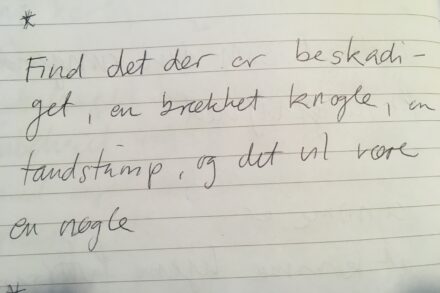 *
Find det der er beskadi-
get, en brækket knogle, en
tandstump, og det vil være
en nøgle
*